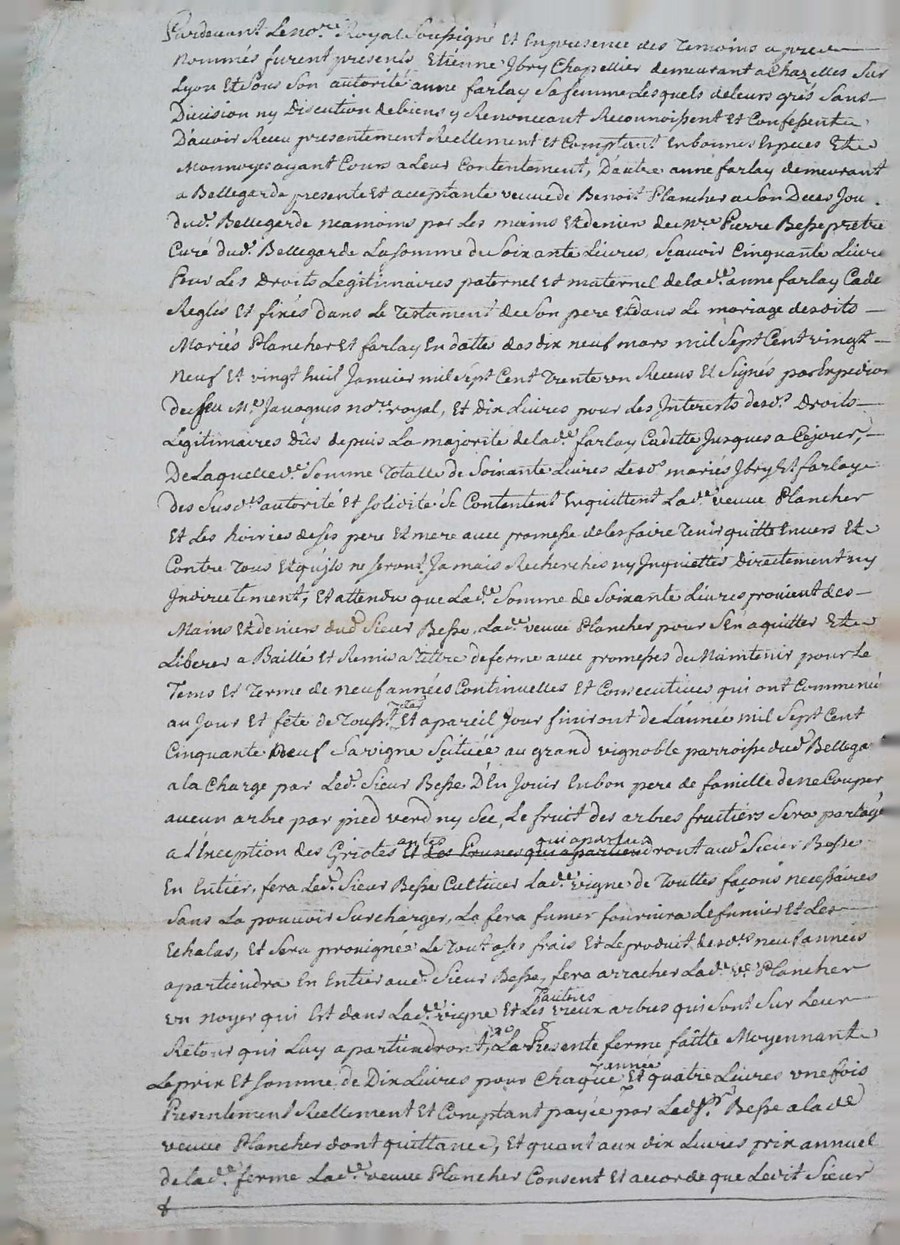 Pardevant Le no.re Royal Soussigné Et En presence des Temoins apres
Nommés furent presents Etienne Jbry Chapellier demeurant a Chazelles Sur
Lyon Et Sous Son autorité anne farlay Sa femme Lesquels de leurs grés Sans
Division ny Discution de biens y Renonceant Reconnoissent Et Confessent
D'avoir Receu presentement Reellement Et Comptant En bonnes Especes Et
Monnoyes ayant Cours a Leur Contentement, D'autre anne farlay demeurant
a Bellegarde presente Et acceptante veuve de Benoit Plancher a Son Deces
dud. Bellegarde neamoins par Les mains Et deniers de m.re Pierre Besse prêtre
Curé dud. Bellegarde La somme de Soixante Livres, Sçavoir Cinquante Livre
Pour Les Droits Legitimaires paternel Et maternel de lad.e anne farlay Cade
Reglés Et fixés dans Le Testament de Son pere Et dans Le mariage desdits
Mariés Plancher Et farlay En datte des dix neuf mars mil Sept Cent vingt
Neuf Et vingt huit Janvier mil Sept Cent Trente un Receus Et Signés par Expedion
de feu M.e Javaquis no.re royal, Et Dix Livres pour Les Interests desd.s Droits
Legitimaires Dûs depuis La majorité de lad.e farlay Cadette Jusques a Cejour,
De Laquelle d.e Somme Totalle de Soixante Livres Lesd.s mariés Jbry Et farlay
des Susd.ts autorité Et Solidité Se Contentent En quittent Lad.e veuve Plancher
Et Les hoiries de Ses pere Et mere avec promesse de les faire Tenir quitte Envers Et
Contre Tous Et qu'ils ne Seront Jamais Recherchés ny Inquiettés Directement ny
Indirectement, Et attendu que Lad.e Somme de Soixante Livres provient des
Mains Et deniers dud. Sieur Besse, Lad.e veuve Plancher pour S'En aquitter Et
Liberer a Baillé Et Remis a Tittre de ferme avec promesses de Maintenir pour Le
Tems Et Terme de neuf années Continuelles Et Consecutives qui ont Commencé
au Jour Et fête de Touss.ts Et a pareil Jour finiront de L'année mil Sept Cent
Cinquante neuf Sa vigne Scituée au grand vignoble parroisse dud. Bellega
a la Charge par Led. Sieur Besse D'En Jouir En bon pere de famille de ne Couper
aucun arbre par pied verd ny Sec, Le fruit des arbres fruitiers Sera partagé
a l'Exception des Griotes Et Les Prunes qui apartiendront aud. Sieur Besse
En Entier, fera Led. Sieur Besse Cultiver Lad.e vigne de Touttes façons necessaires
Sans La pouvoir Surcharger, La fera fumer fournira Le fumier Et Les
Echalas, Et Sera provignée Le Tout a Ses frais Et Le produit desd.es neuf années
apartiendra En Entier aud. Sieur Besse, fera arracher Lad.e v.e Plancher
un noyer qui Est dans Lad.e vigne Et Les vieux arbres qui Sont Sur Leur
Retour qui Luy apartiendront, La Presente ferme faitte Moyennant
Le prix Et Somme de Dix Livres pour Chaque année Et quatre Livres une fois
Presentement Reellement Et Comptant payée par Led. S.r Besse a lad.e
veuve Plancher dont quittance, Et quant aux dix Livres prix annuel
de lad.e ferme Lad.e veuve Plancher Consent Et accorde que Ledit Sieur